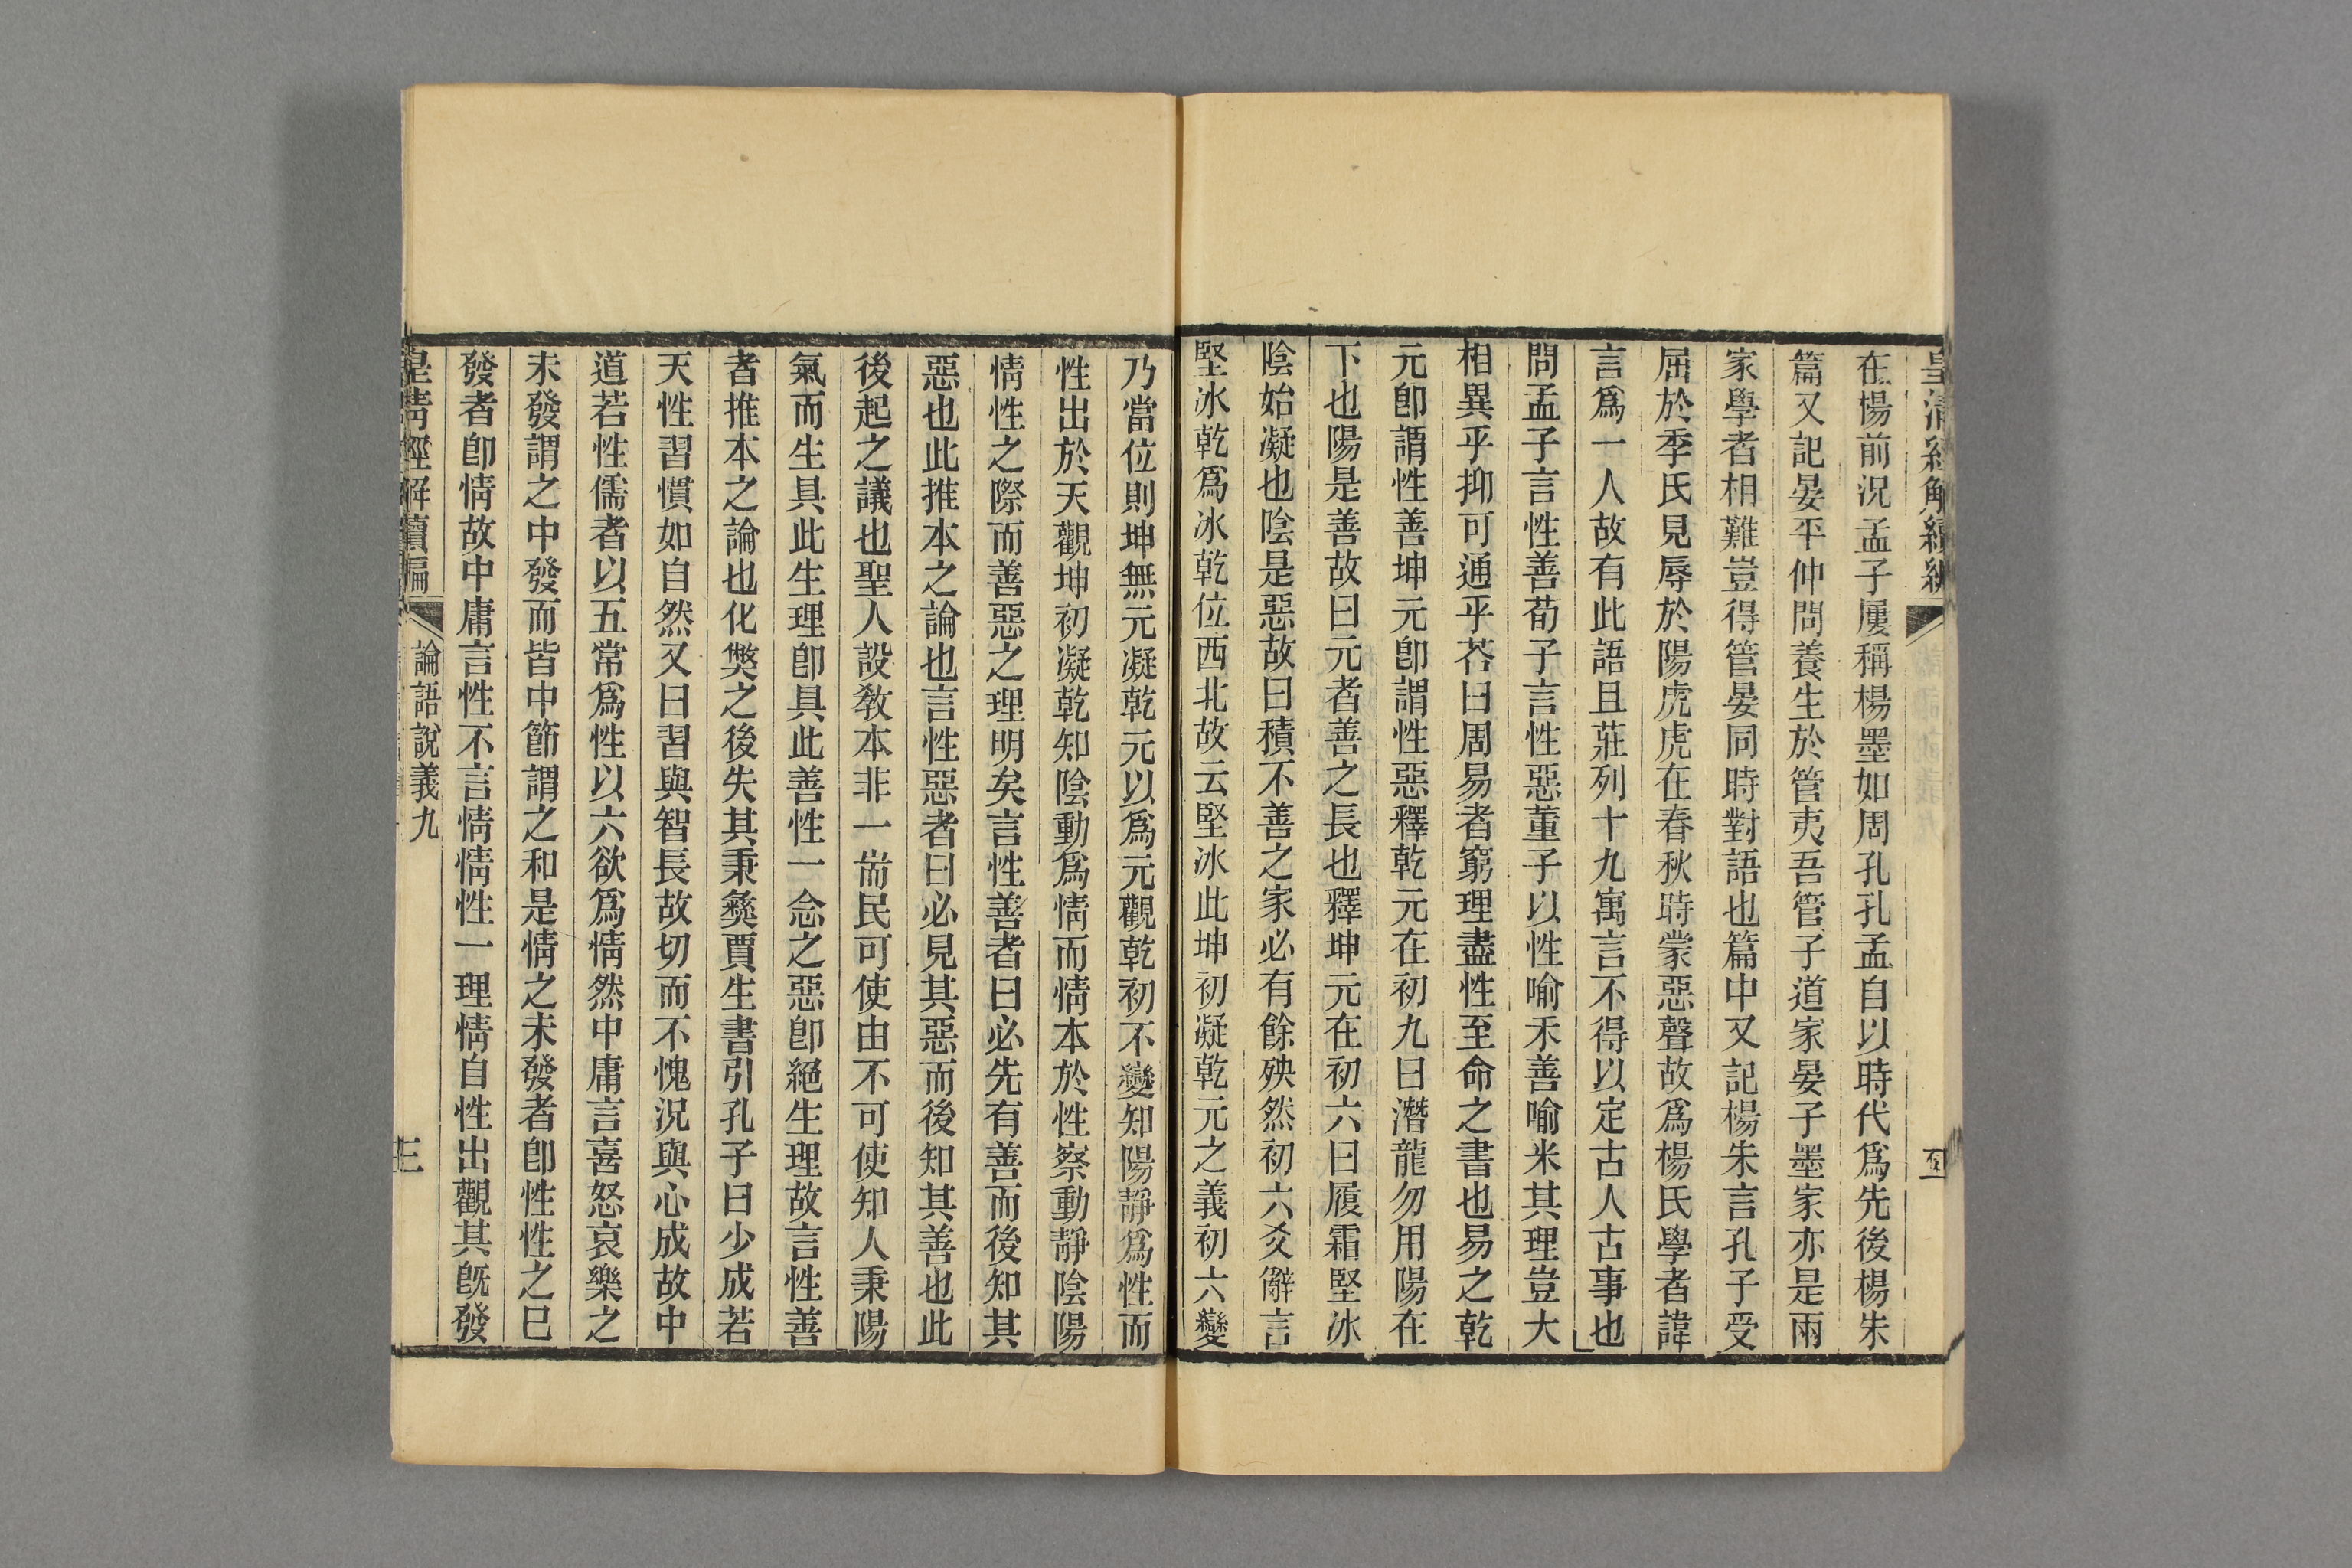 皇清經解續編
在楊前況孟子屢稱楊墨如周孔孔孟自以時代爲先後楊朱
篇又記晏平仲問養生於管夷吾管子道家晏子墨家亦是兩
家學者相難豈得管晏同時對語也篇中又記楊朱言孔子受
屈於季氏見辱於陽虎虎在春秋時蒙惡聲故爲楊氏學者諱
言爲一人故有此語且莊列十九寓言不得以定古人古事也
問孟子言性善荀子言性惡董子以性喻禾善喻米其理豈大
相異乎抑可通乎荅曰周易者窮理盡性至命之書也易之乾
元卽謂性善坤元卽謂性惡釋乾元在初九曰潛龍勿用陽在
下也陽是善故曰元者善之長也釋坤元在初六曰履霜堅冰
陰始凝也陰是惡故曰積不善之家必有餘殃然初六爻辭言
堅冰乾爲冰乾位西北故云堅冰此坤初凝乾元之義初六變
乃當位則坤無元凝乾元以爲元觀乾初不變知陽靜爲性而
性出於天觀坤初凝乾知陰動爲情而情本於性察動靜陰陽
情性之際而善惡之理明矣言性善者曰必先有善而後知其
惡也此推本之論也言性惡者曰必見其惡而後知其善也此
後起之議也聖人設敎本非一耑民可使由不可使知人秉陽
氣而生具此生理卽具此善性一念之惡卽絕生理故言性善
者推本之論也化獘之後失其秉彝賈生書引孔子曰少成若
天性習慣如自然又曰習與智長故切而不愧況與心成故中
道若性儒者以五常爲性以六欲爲情然中庸言喜怒哀樂之
未發謂之中發而皆中節謂之和是情之未發者卽性性之巳
發者卽情故中庸言性不言情情性一理情自性出觀其旣發
皇清經解續編
論語說義九
三